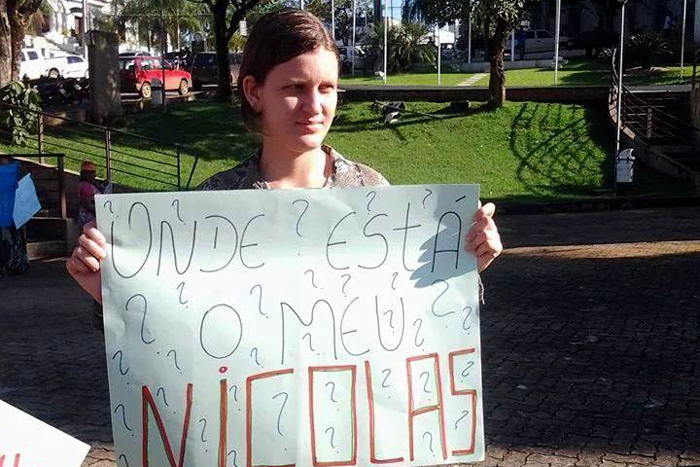 ONDE ESTÁ
O MEU
NICOLAS